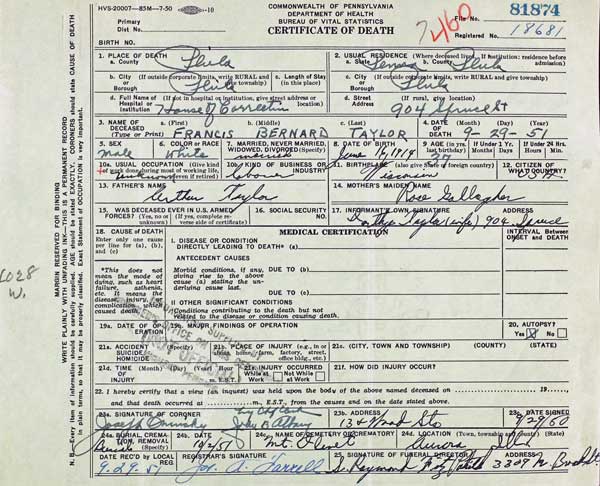 HVS-20007—85M—7-50 -10
COMMONWEALTH OF PENNSYLVANIA
DEPARTMENT OF HEALTH
BUREAU OF VITAL STATISTICS
CERTIFICATE OF DEATH
81874
File No.
Registered No. 18681
Primary
Dist No.
BIRTH NO.
1. PLACE OF DEATH
a. County Phila
2. USUAL RESIDENCE (Where deceased lived. If Institution: residence before admission)
a. State Penna b. County Phila
b. City (If outside corporate limits, write RURAL and give township) Phila
c. Length of Stay (in this place)
c. City (If outside corporate limits, write RURAL and give township)
or Phila
d. Full Name of Hospital or Institution (If not in hospital or institution, give street address or location)
House of Correction
d. Street Address (If rural, give location)
904 Spruce St
3. NAME OF DECEASED (Type or Print) a. (First) b. (Middle) c. (Last)
FRANCIS BERNARD TAYLOR
4. DATE OF DEATH (Month) (Day) (Year)
9-29-51
5. SEX
Male
6. COLOR OR RACE
White
7. MARRIED, NEVER MARRIED, WIDOWED, DIVORCED (Specify)
married
8. DATE OF BIRTH
June 16, 1914
9. AGE (In years last birthday)
37
If Under 1 Yr. Months Days
If Under 24 Hrs. Hours Min.
10a. USUAL OCCUPATION (Give kind of work done during most of working life, even if retired)
10b. KIND OF BUSINESS OR INDUSTRY
laborer
11. BIRTHPLACE (also give State or foreign country)
Wisconsin
12. CITIZEN OF WHAT COUNTRY?
USA
13. FATHER'S NAME
Arthur Taylor
14. MOTHER'S MAIDEN NAME
Rose Gallagher
15. WAS DECEASED EVER IN U.S. ARMED FORCES? (Yes, no or unknown) (If yes, complete reverse side of certificate)
16. SOCIAL SECURITY NO.
17. INFORMANT'S OWN SIGNATURE ADDRESS
Taylor (wife) 904 Spruce
18. CAUSE OF DEATH
Enter only one cause per line for (a), (b), and (c)
MEDICAL CERTIFICATION
INTERVAL BETWEEN ONSET AND DEATH
I. DISEASE OR CONDITION
DIRECTLY LEADING TO DEATH* (a)
ANTECEDENT CAUSES
*This does not mean the mode of dying, such as heart failure, asthenia, etc. It means the disease, injury, or complication which caused death.
Morbid conditions, if any, giving rise to the above cause (a) stating the underlying cause last.
DUE TO (b)
DUE TO (c)
II OTHER SIGNIFICANT CONDITIONS
Conditions contributing to the death but not related to the disease or condition causing death.
19a. DATE OF OPERATION
19b. MAJOR FINDINGS OF OPERATION
20. AUTOPSY?
Yes No
21a. ACCIDENT (Specify) SUICIDE HOMICIDE
21b. PLACE OF INJURY (e.g., in or about home, farm, factory, street, office bldg., etc.)
21c. (CITY, TOWN AND TOWNSHIP) (COUNTY) (STATE)
21d. TIME (Month) (Day) (Year) (Hour)
OF INJURY m. E.S.T.
21e. INJURY OCCURRED
While at Work Not While at Work
21f. HOW DID INJURY OCCUR?
22. I hereby certify that a (view) (an inquest) was held upon the body of the above named deceased on 19
and that death occurred at m., E.S.T., from the causes and on the date stated above.
23a. SIGNATURE OF CORONER
Joseph Ominsky
23b. ADDRESS
13 & Wood Sts
23c. DATE SIGNED
9/29/60
24a. BURIAL, CREMATION, REMOVAL (Specify)
24b. DATE
24c. NAME OF CEMETERY OR CREMATORY
Mt. Olivet
24d. LOCATION (Town, township, county) (State)
Aurora
DATE REC'D BY LOCAL REG.
9-29-51
REGISTRAR'S SIGNATURE
Jos. A. Farrell
25. SIGNATURE OF FUNERAL DIRECTOR ADDRESS
S. Raymond 3309 N. Broad St
MARGIN RESERVED FOR BINDING
WRITE PLAINLY WITH UNFADING INK—THIS IS A PERMANENT RECORD
N. B.—Every item of information should be carefully supplied. AGE should be stated EXACTLY. CORONERS should state CAUSE OF DEATH in plain terms, so that it may be properly classified. Exact Statement of OCCUPATION is very important.
1028
W.